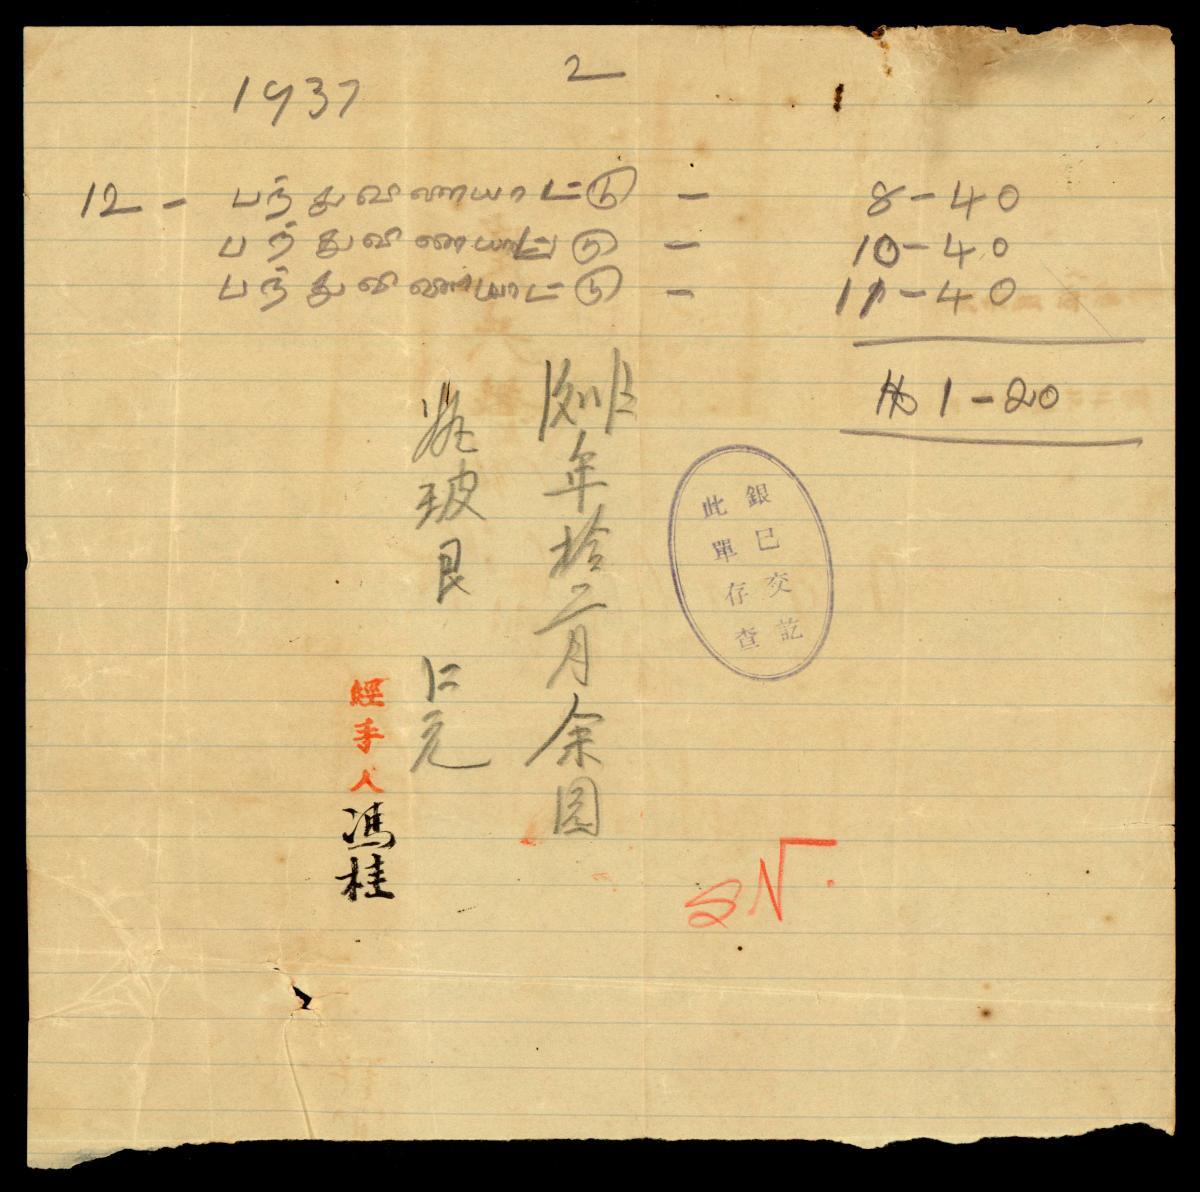 2
1937
12 - பந்துவிளையாட்டு - 8-40
பந்துவிளையாட்டு - 10-40
பந்துவிளையாட்டு - 11-40
1-20
銀已交訖
此單存查
年拾二月余圓
玻艮 仁元
經手人馮桂